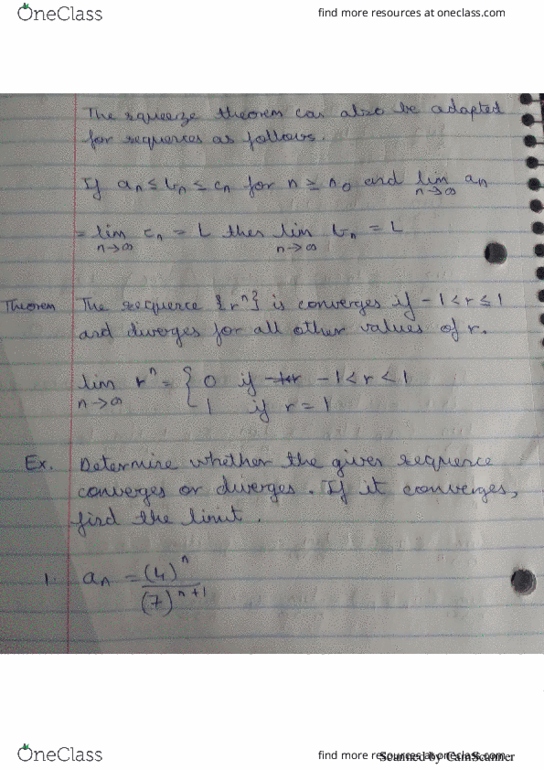 OneClass
find more resources at oneclass.com
The squeeze theorem can also be adapted
for sequences as follows.
If aₙ ≤ bₙ ≤ cₙ for n ≥ n₀ and lim aₙ
n→∞
= lim cₙ = L then lim bₙ = L
n→∞ n→∞
Theorem The sequence {rⁿ} is converges if -1 < r ≤ 1
and diverges for all other values of r.
lim rⁿ = { 0 if -1 < r < 1
n→∞ 1 if r = 1
Ex. Determine whether the given sequence
converges or diverges. If it converges,
find the limit.
1. aₙ = (4)ⁿ
(7)ⁿ⁺¹
OneClass
find more resources at oneclass.com
Scanned by CamScanner